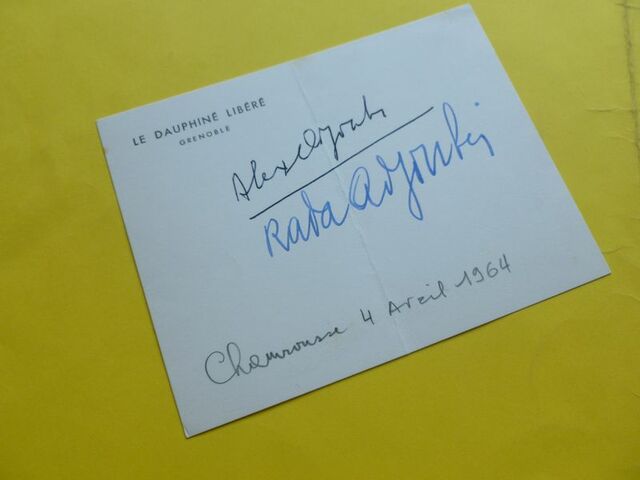 LE DAUPHINÉ LIBÉRÉ
GRENOBLE
Alex Adjoubi
Rada Adjoubei
Chamrousse 4 Avril 1964